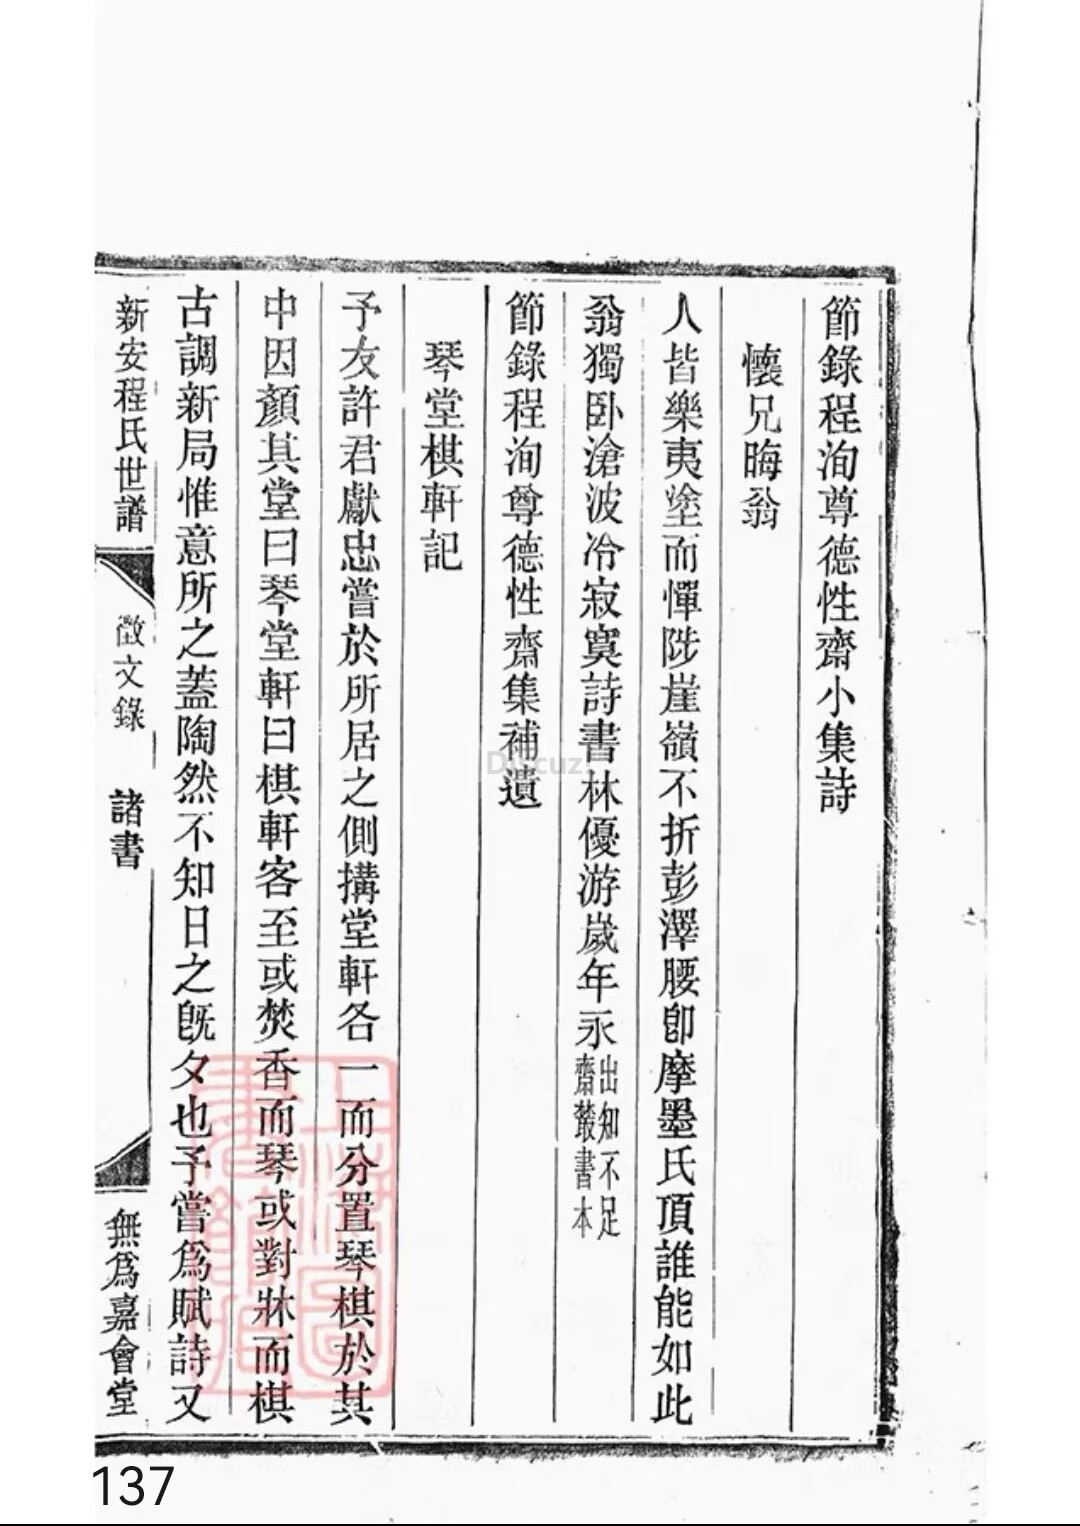 節錄程洵尊德性齋小集詩
懷兄晦翁
人皆樂夷塗而憚陟崖嶺不折彭澤腰卽摩墨氏頂誰能如此
翁獨卧滄波冷寂寞詩書林優游歲年永出知不足
齋叢書本
節錄程洵尊德性齋集補遺
琴堂棋軒記
予友許君獻忠嘗於所居之側搆堂軒各一而分置琴棋於其
中因顏其堂曰琴堂軒曰棋軒客至或焚香而琴或對牀而棋
古調新局惟意所之蓋陶然不知日之旣夕也予嘗爲賦詩又
新安程氏世譜
徵文錄
諸書
無爲嘉會堂
上海圖
書館藏
Discuz!
137